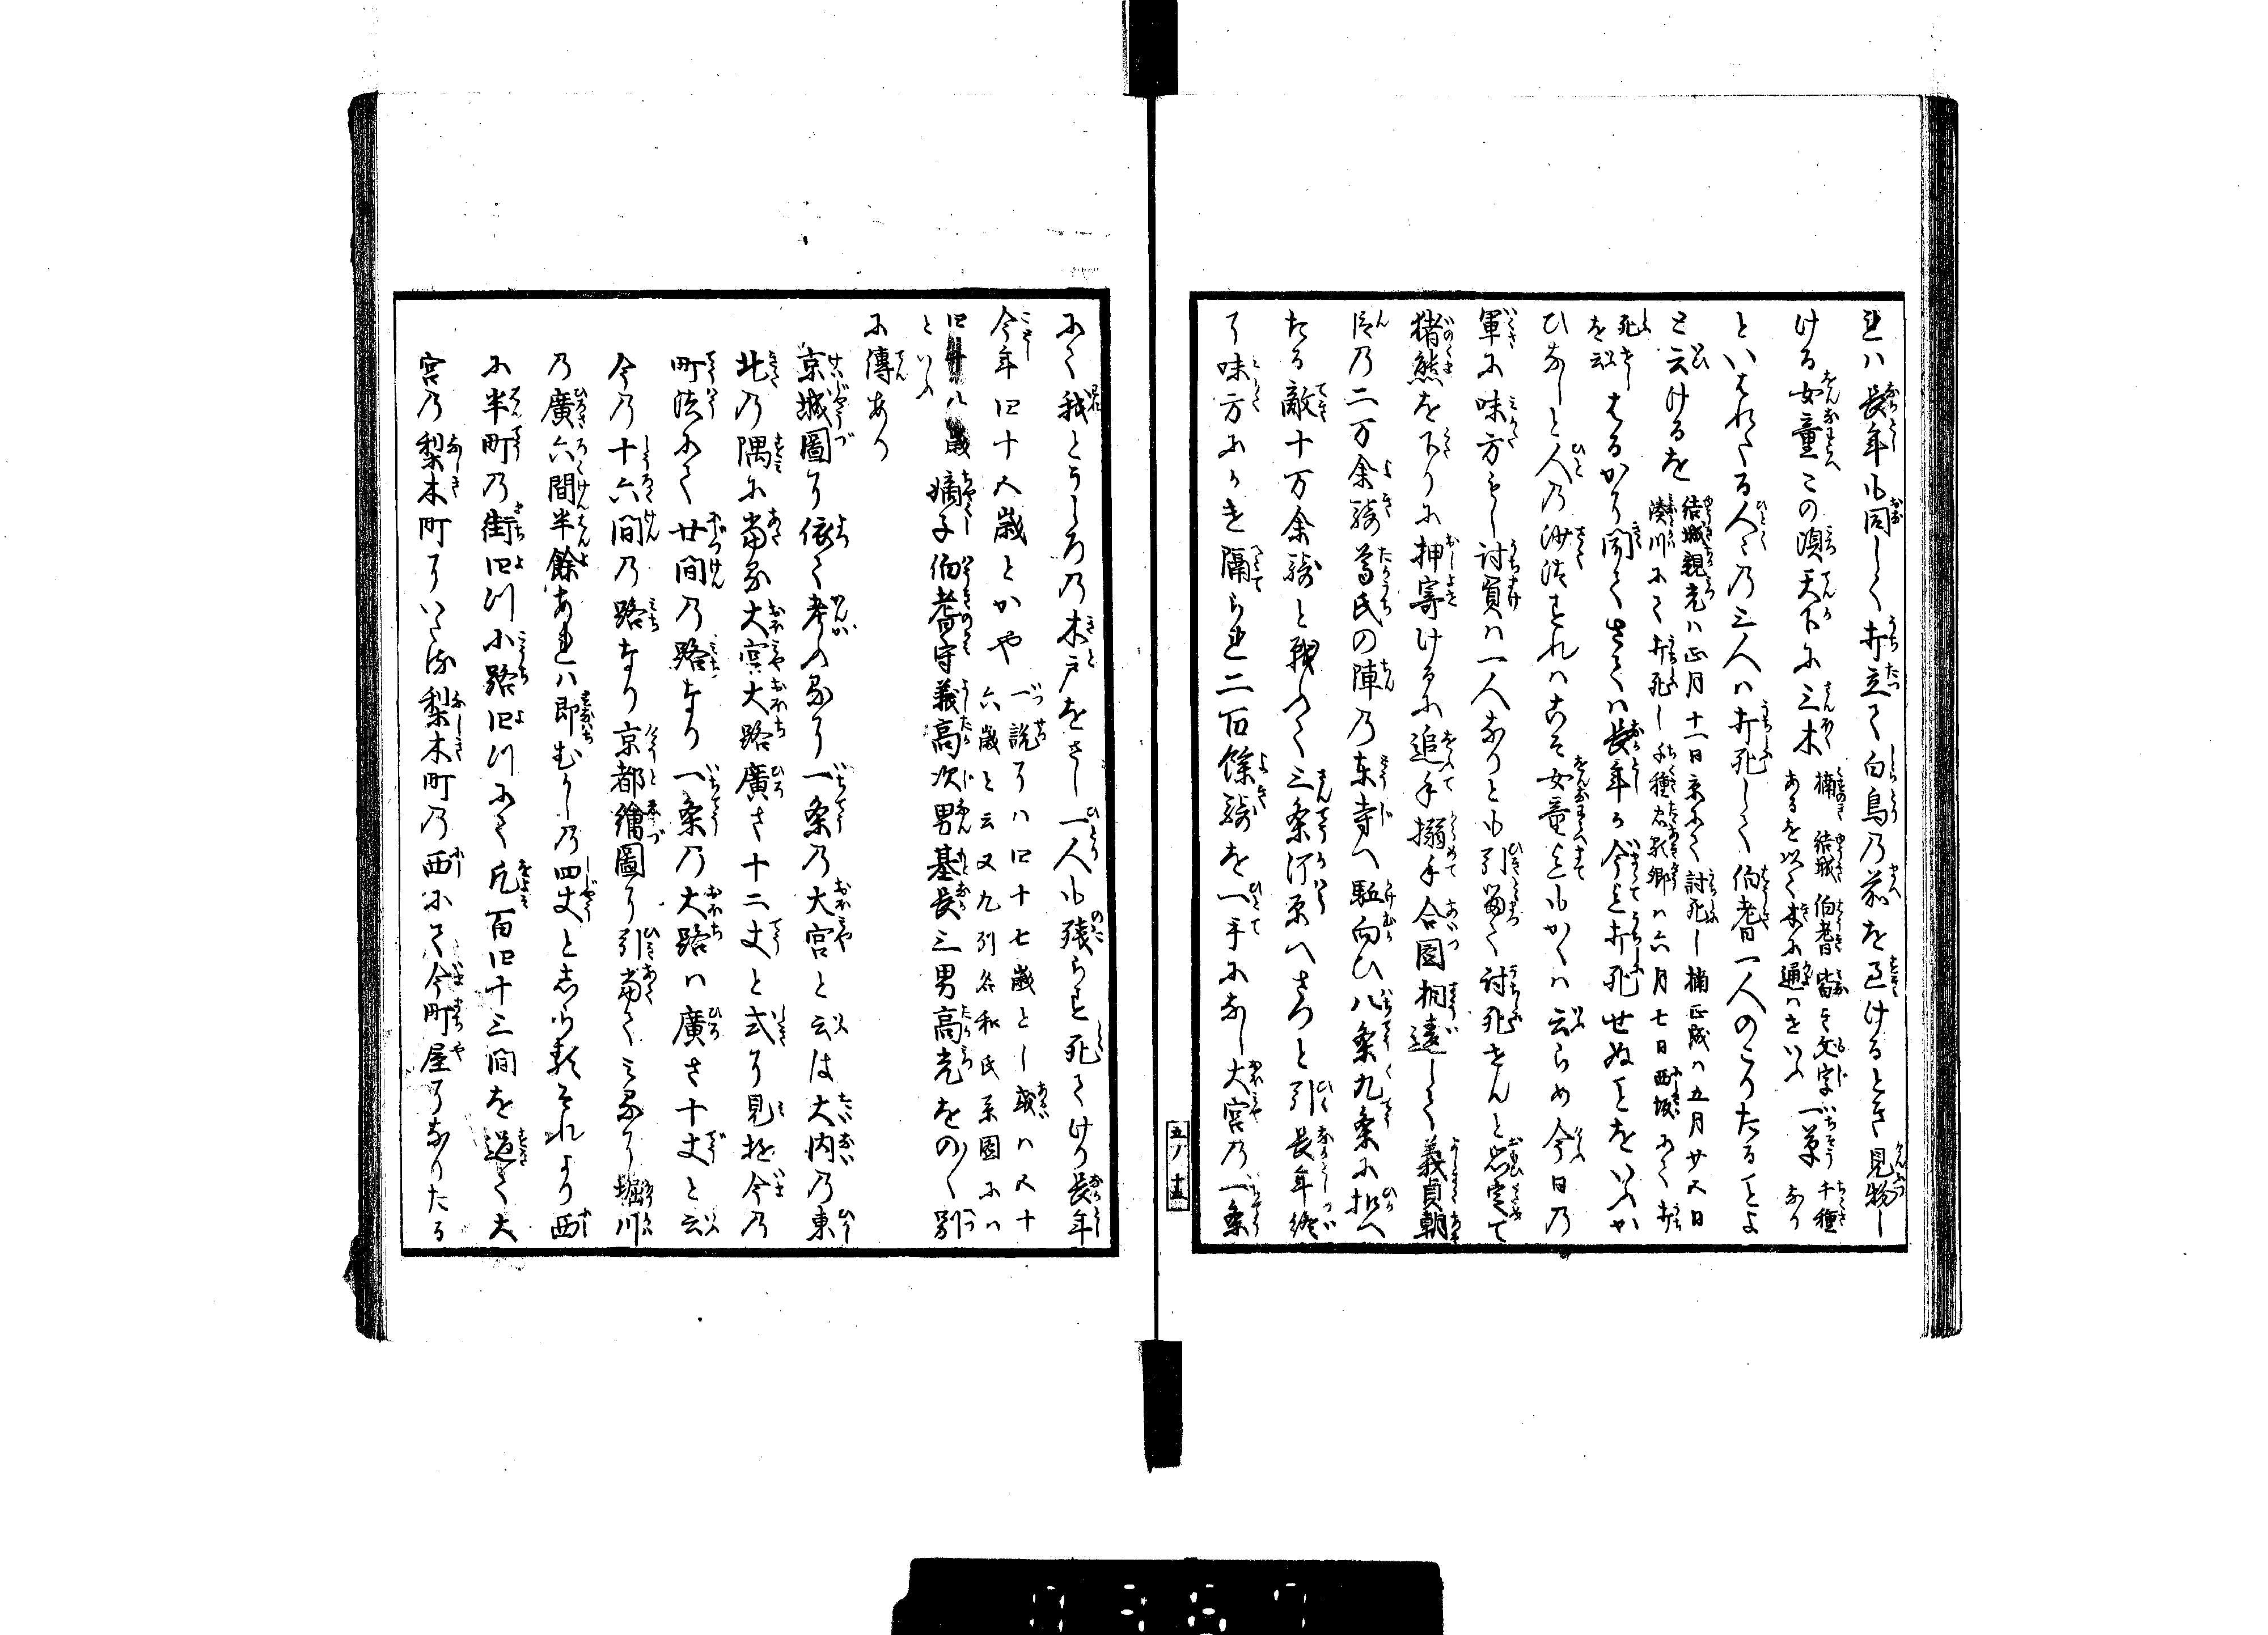 れハ長年も同しく打立て白鳥乃前を過けるとき見物し
ける女童この頃天下に三木 楠 結城 伯耆 皆き文字 一草 千種
あるを以て木に通ハをいふ なり
といはれたる人々乃三人ハ打死して伯耆一人のこりたることよ
と云けるを 結城親光ハ正月十一日京にて討死し楠正成ハ五月廿五日
湊川にて打死し千種忠顕卿ハ六月七日西坂にて打
死をしはるかり聞てさてハ長年が今まて打死せぬことをいふか
を云
ひなしと人乃沙汰すれハこそ女童までもかくハ云らめ今日乃
軍に味方もし討負ハ一人なりとも引留て討死せんと思定て
猪熊を下りに押寄けるに追手搦手合圖相違して義貞朝
臣乃二万余騎尊氏の陣乃東寺へ駈向ひ八条九条に扣へ
たる敵十万余騎と戦ふて三条河原へさつと引長年終
に味方にかき隔られ二百餘騎を一手になし大宮乃一条
にて我とうしろ乃木戸をさし一人も残らす死てけり長年
今年四十五歳とかや 一説にハ四十七歳とし或ハ五十
六歳と云又九引名和氏系圖にハ
四十八歳 嫡子伯耆守義高次男基長三男高光をの〱別
といふ
に傳あり
京城圖に依て考ふるに一条乃大宮と云は大内乃東
北乃隅に當る大宮大路廣さ十二丈と式に見ゆ今乃
町法にて廿間乃路なり一条乃大路ハ廣さ十丈と云
今乃十六間乃路なり京都繪圖に引當てミるに堀川
乃廣六間半餘あれハ即むかし乃四丈と志らるそれより西
に半町乃街四ツ小路四ツにて凡百四十三間を過て大
宮乃梨木町にいたる梨木町乃西にて今町屋になりたる
五ノ十五